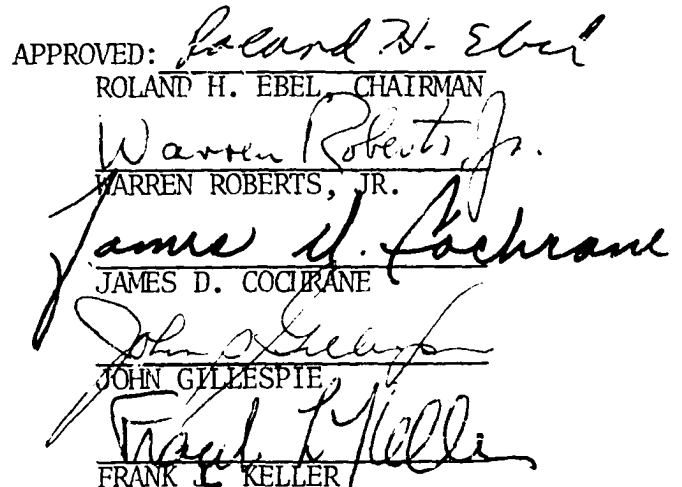 APPROVED: Roland H. Ebel
ROLAND H. EBEL, CHAIRMAN
Warren Roberts, Jr.
WARREN ROBERTS, JR.
James D. Cochrane
JAMES D. COCHRANE
John Gillespie
JOHN GILLESPIE
Frank L Keller
FRANK L. KELLER